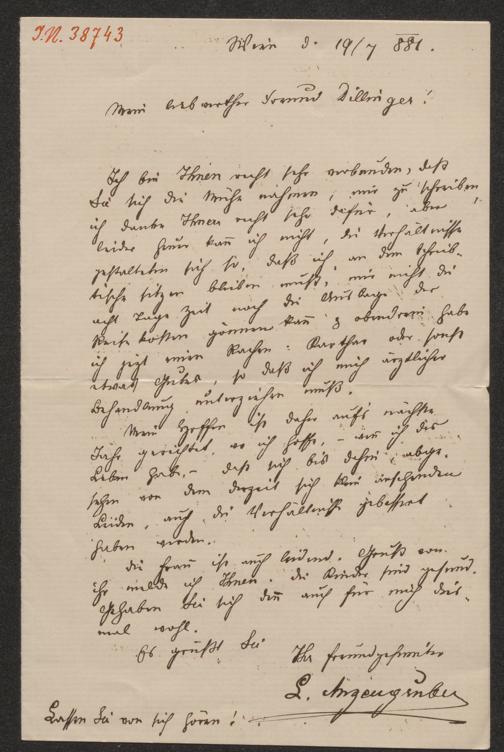 I.N. 38743
Wien d. 19/7 881.
Mein liebwerther Freund Dillinger!
Ich bin Ihnen recht sehr verbunden, daß
Sie sich die Mühe nahmen, mir zu schreiben,
ich danke Ihnen recht sehr dafür, aber
leider heuer kañ ich nicht, die Verhältnisse
gestalteten sich so, daß ich an dem Schreib-
tische sitzen bleiben muß, mir nicht die
acht Tage Zeit noch die Auslage der
Reisekosten gönnen kañ & obendrein habe
ich jetzt einen Rachen: Karthar oder sonst
etwas Gutes, so daß ich mich ärztlicher
Behandlung unterziehen muß.
Mein Hoffen ist daher auf's nächste
Jahr gerichtet, wo ich hoffe, – weñ ich das
Leben hab, – daß sich bis dahin, abge-
sehen von dem derzeit sich
Leiden, auch die Verhältnisse gebessert
haben werden.
Die Frau ist auch leidend. Gruß von
ihr melde ich Ihnen. Die Kinder sind gesund.
Gehaben Sie sich deñ auch für mich dies-
mal wohl.
Es grüßt Sie
Ihr freundgesinnter
L. Anzengruber
Lassen Sie von sich hören!